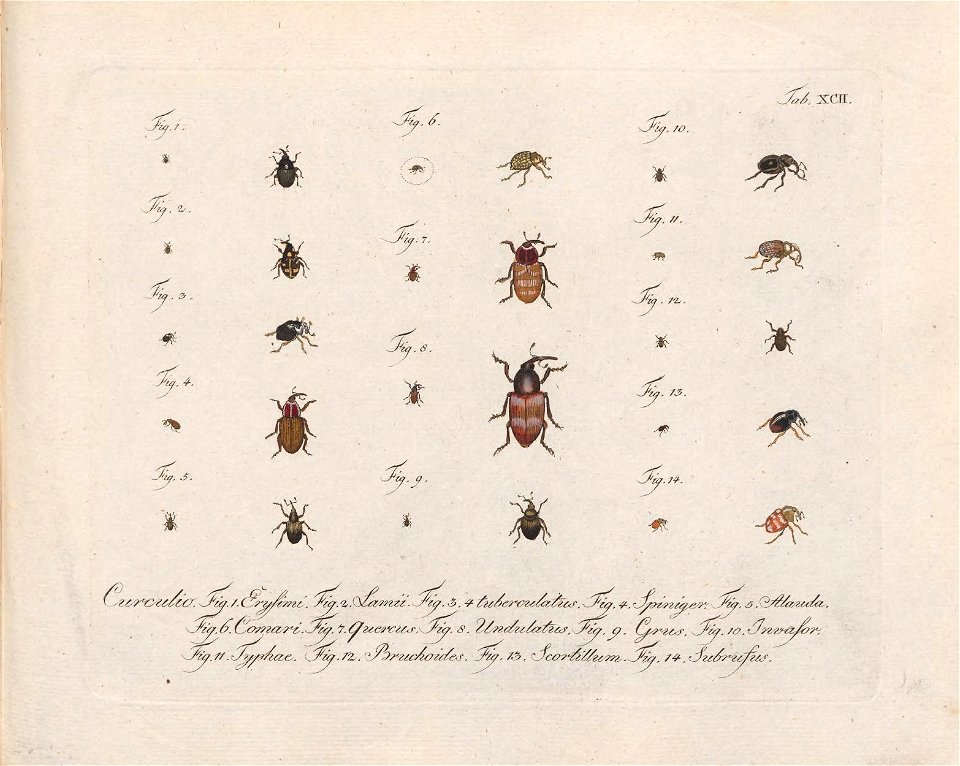 Tab. XCII.
Fig. 1.
Fig. 6.
Fig. 10.
Fig. 2.
Fig. 7.
Fig. 11.
Fig. 3.
Fig. 12.
Fig. 8.
Fig. 4.
Fig. 13.
Fig. 5.
Fig. 9.
Fig. 14.
Curculio. Fig. 1. Eryſimi. Fig. 2. Lamii. Fig. 3. 4 tuberculatus. Fig. 4. Spiniger. Fig. 5. Alauda.
Fig. 6. Comari. Fig. 7. Quercus. Fig. 8. Undulatus. Fig. 9. Grus. Fig. 10. Invaſor.
Fig. 11. Typhae. Fig. 12. Bruchoides. Fig. 13. Scortillum. Fig. 14. Subrufus.